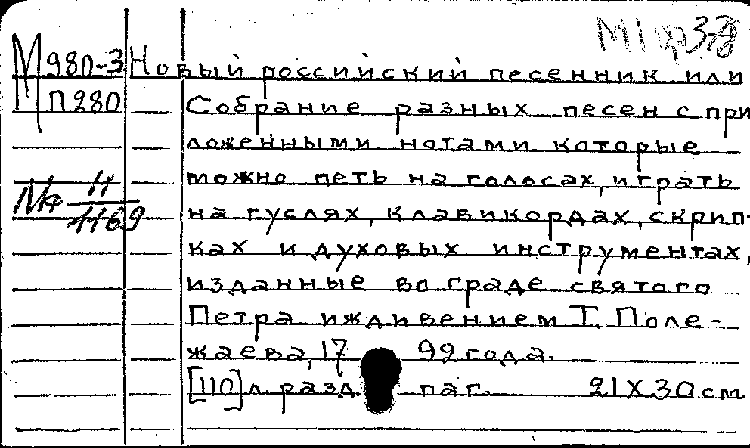 М980-3 Новый российский песенник или
П280 Собрание разных песен с при
ложенными нотами которые
можно петь на голосах, играть
Мф 11/1169
на гуслях, клавикордах, скрип-
ках и духовых инструментах,
изданные во граде святого
Петра иждивением Т. Поле-
жаева, 17 92 года.
[110] л. разд. паг. 21 X 30 см